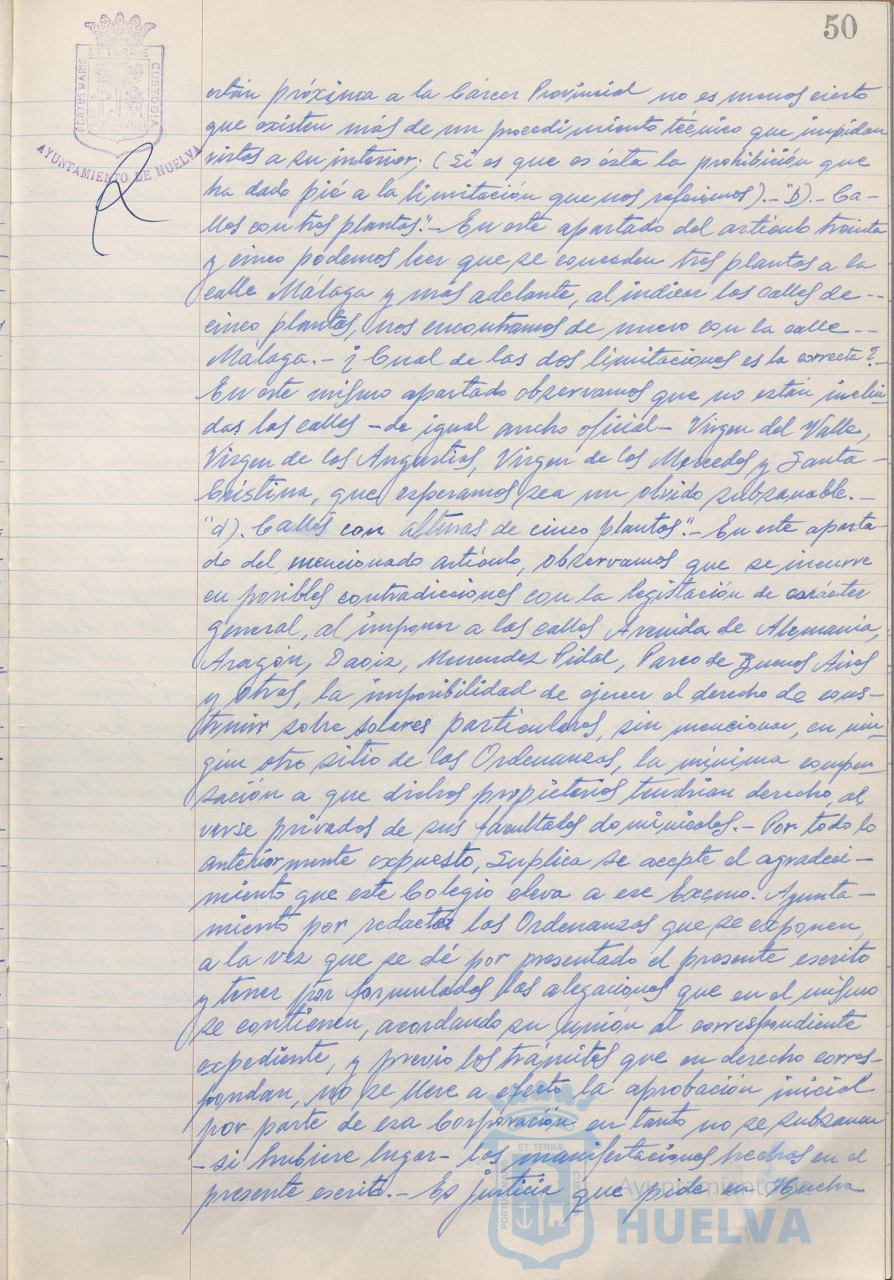 50
ET TERRAE
PORTUS MARIS
CUSTODIA
AYUNTAMIENTO DE HUELVA
están próxima a la Cárcer Provincial no es menos cierto
que existen más de un procedimiento técnico que impidan
vistas a su interior; (si es que es ésta la prohibición que
ha dado pié a la limitación que nos referimos).- "b).- Ca-
lles con tres plantas".- En este apartado del artículo treinta
y cinco podemos leer que se conceden tres plantas a la
calle Málaga y más adelante, al indicar las calles de --
cinco plantas, nos encontramos de nuevo con la calle --
Málaga.- ¿Cual de las dos limitaciones es la correcta?.-
En este mismo apartado observamos que no están inclui-
das las calles -de igual ancho oficial- Virgen del Valle,
Virgen de las Angustias, Virgen de las Mercedes y Santa-
Cristina, que esperamos sea un olvido subsanable.-
"d). Calles con alturas de cinco plantas".- En este aparta-
do del mencionado artículo, observamos que se incurre
en posibles contradicciones con la legislación de carácter
general, al imponer a las calles Avenida de Alemania,
Aragón, Daoiz, Menendez Pidal, Paseo de Buenos Aires
y otras, la imposibilidad de ejercer el derecho de cons-
truir sobre solares particulares, sin mencionar, en nin-
gún otro sitio de las Ordenanzas, la mínima compen-
sación a que dichos propietarios tendrian derecho, al
verse privados de sus facultades dominicales.- Por todo lo
anteriormente expuesto, Suplica se acepte el agradeci-
miento que este Colegio eleva a ese Excmo. Ayunta-
miento por redactar las Ordenanzas que se exponen,
a la vez que se dé por presentado el presente escrito
y tener por formuladas las alegaciones que en el mismo
se contienen, acordando su unión al correspondiente
expediente, y previo los trámites que en derecho corres-
pondan, no se lleve a efecto la aprobación inicial
por parte de esa Corporación en tanto no se subsanen
-si hubiere lugar- las manifestaciones hechas en el
presente escrito.- Es justicia que pide en Huelva
ET TERRAE
Ayuntamiento de
HUELVA